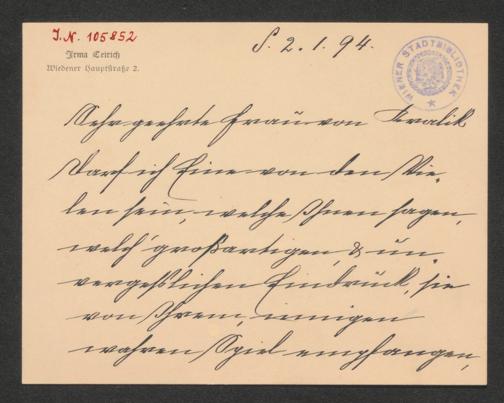 I.N. 105852
Irma Teirich
Wiedener Hauptstraße 2.
S. 2.1.94.
WIENER STADTBIBLIOTHEK
Sehr geehrte Frau von Kralik
Darf ich Eine von den Vie-
len sein, welche Ihnen sagen,
welch' großartigen, & un-
vergeßlichen Eindruck, sie
von Ihrem, innigen
wahren Spiel empfangen,